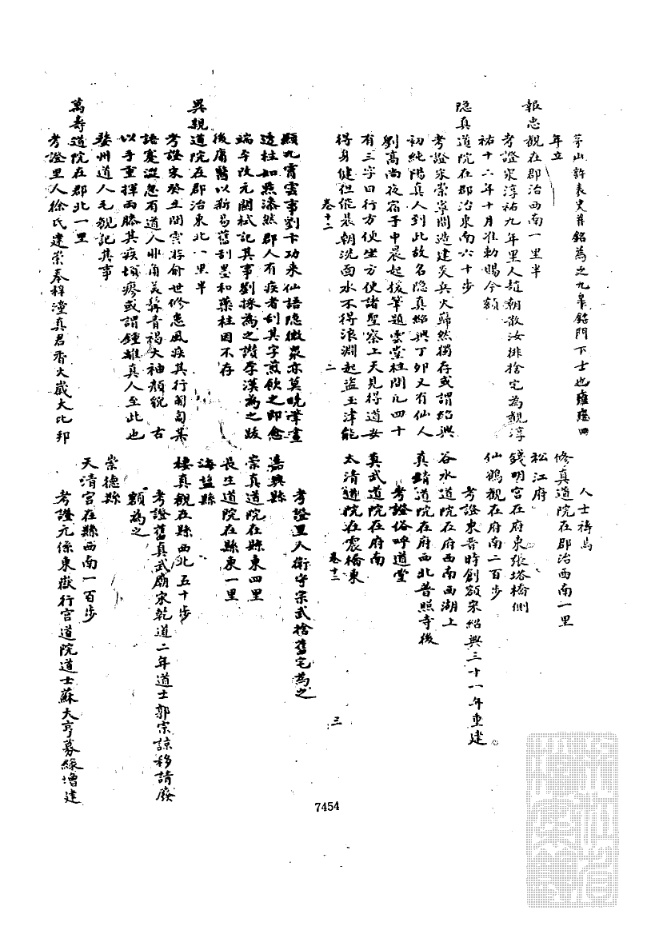 茅山許長史井銘為之九皋銘門下士也雍熙四
年立
報忠觀在郡治西南一里半
考證宋淳祐九年里人趙朝散汝排捨宅為觀淳
祐十二年十月准勅賜今額
隐真道院在郡治東南六十步
考證宋崇寧間造建炎兵火歸然獨存或謂紹興
初純陽真人到此故名隐真紹興丁卯又有仙人
劉高尚夜宿于中晨起拔筆題雲堂柱間凡四十
有三字曰行方便坐方便諸聖察上天見得道安
得身健但能晨朝洗面水不得浪淵起盜玉津能
卷十二
二
顯九霄雲事劉卞功來仙語隐微衆亦莫曉筆畫
透柱如無漆然郡人有疾者刮其字煎飲之即愈
端午改元關栻記其事劉操為之讚李漢為之跋
後庸醫以新易舊刮墨和藥柱因不存
吳親道院在郡治東北一里半
考證宋癸丑間雲游俞世修患風疾其行匍匐某
語蹇澁忽有道人丱角美髯青褐大袖顏貌古
以手重揮两膝其疾頓瘳或謂鍾離真人至此也
婺州道人元觀記其事
萬壽道院在郡北一里
考證里人徐氏建崇奉梓潼真君香火歲大比郡
人士祷焉
修真道院在郡治西南一里
松江府
錢明宫在府東張塔橋側
仙鶴觀在府南二百步
考證東晋時創額宋紹興三十一年重建
谷水道院在府西南西湖上
真靖道院在府西北普照寺後
考證俗呼道堂
真武道院在府南
太清道院在震橋東
卷十二
三
考證里人衛守宗武捨舊宅為之
嘉興縣
崇真道院在縣東四里
長生道院在縣東一里
海盐縣
棲真觀在縣西北五十步
考證舊真武廟宋乾道二年道士郭宗諒移請廢
額為之
崇德縣
天清宫在縣西南一百步
考證元係東嶽行宫道院道士蘇大亨募緣增建
7454